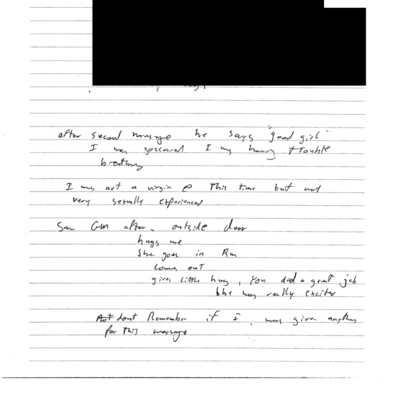 after second massage he says "good girl"
I was so scared I was having trouble
breathing
I was not a virgin @ This time but not
very sexually experienced
Saw GM after - outside door
hugs me
She goes in Rm
comes out
gives little hug, You did a great job
She was really excited
dont Remember if I was given anything
for This massage